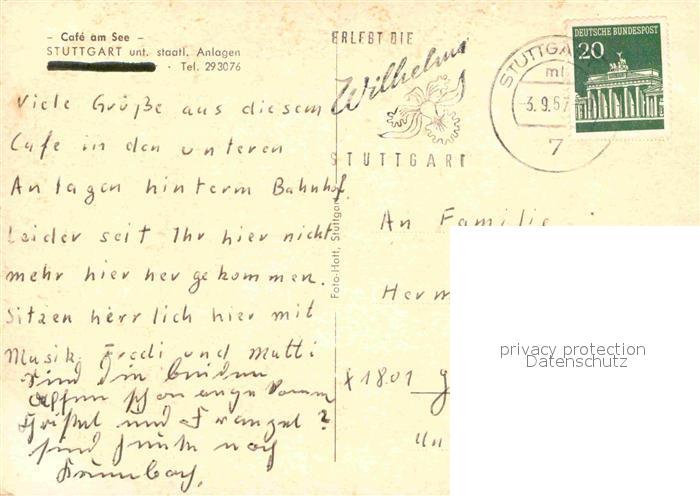 - Café am See -
STUTTGART unt. staatl. Anlagen
· Tel. 293076
ERLEBT DIE
Wilhelma
STUTTGART
STUTTGA
3.9.67
7
DEUTSCHE BUNDESPOST
20
Viele Grüße aus diesem
Cafe in den unteren
Anlagen hinterm Bahnhof.
Leider seit Ihr hier nicht
mehr hier her gekommen.
Sitzen herrlich hier mit
Musik. Fredi und Mutti
sind die beiden
Affen schon angekommen
und Franzel?
sind heute nach
Foto-Hott, Stuttgart
An Familie
Herm
1801
Un
privacy protection
Datenschutz